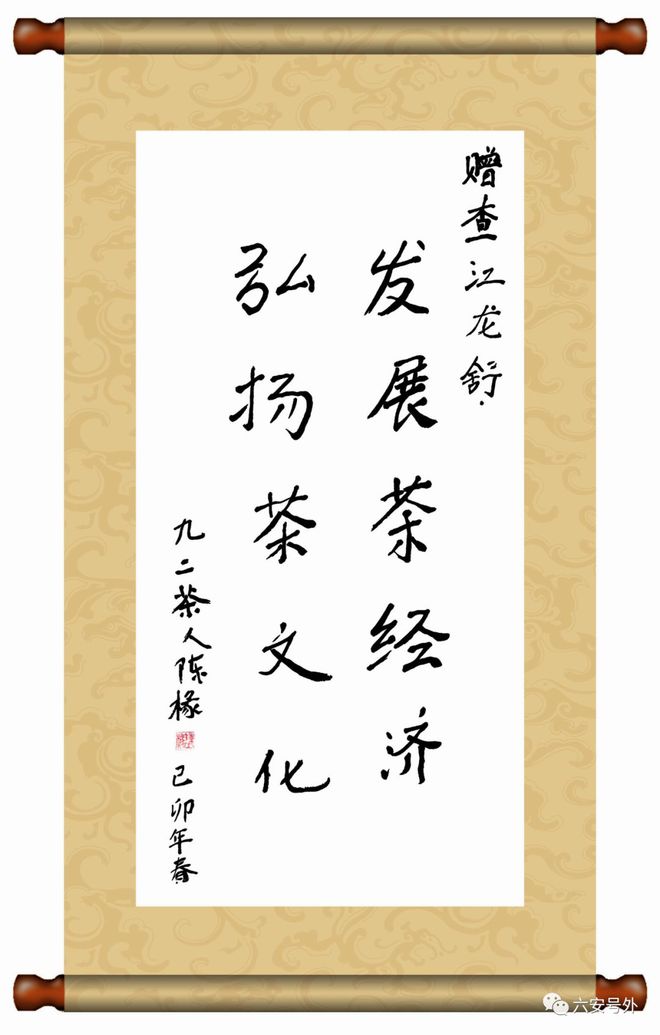 赠查江龙舒
发展茶经济
弘扬茶文化
九二茶人陈椽
己卯年春
六安号外